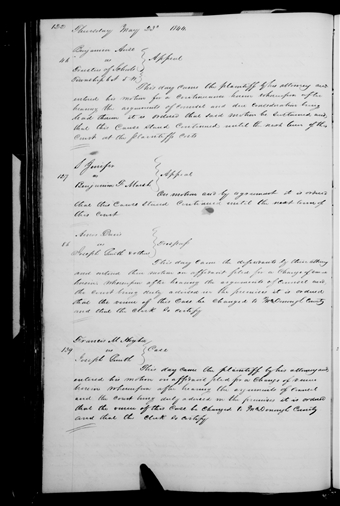 Thursday May 23d 1844
Benjamin
46 vs Appeal
Trustees of Schools
Township 6
This day came the plaintiff by his attorney and
entered his motion for a continuance herein whereupon after
hearing the arguments of counsel and due consideration being
had thereon it is ordered that said motion be sustained and
that this Cause Stand Continued until the next term of this
Court at the plaintiffs costs
S
127 vs Appeal
Benjamin F. Marsh
On motion and by agreement it is ordered
that this Cause Stand Continued until the next term of
this Court
vs Trespass
Joseph Smith & others
This day came the defendants by their attorney
and entered their motion on affidavit filed for a Change of venue
herein whereupon after hearing the arguments of Counsel and
the court being duly advised in the premises it is ordered
that the venue of this Case be Changed to McDonough County
and that the Clerk do certify
Francis M. Higbee
139 vs Case
Joseph Smith
This day came the plaintiff by his attorney and
entered his motion on affidavit filed for a Change of venue
herein whereupon after hearing the arguments of Counsel
and the court being duly advised in the premises it is ordered
that the venue of this Case be Changed to McDonough County
and that the Clerk do certify